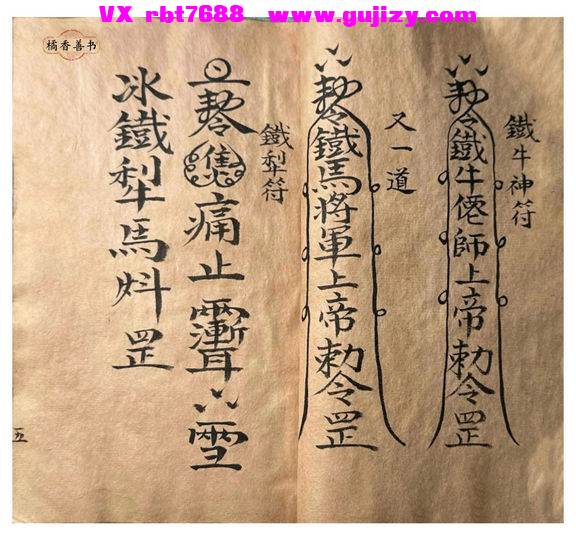 VX rbt7688 www.gujizy.com
橘香善书
鐵牛神符
鐵牛僊師上帝勅令罡
又一道
鐵馬將軍上帝勅令罡
鐵犁符
痛止
冰鐵犁馬㪷罡
五